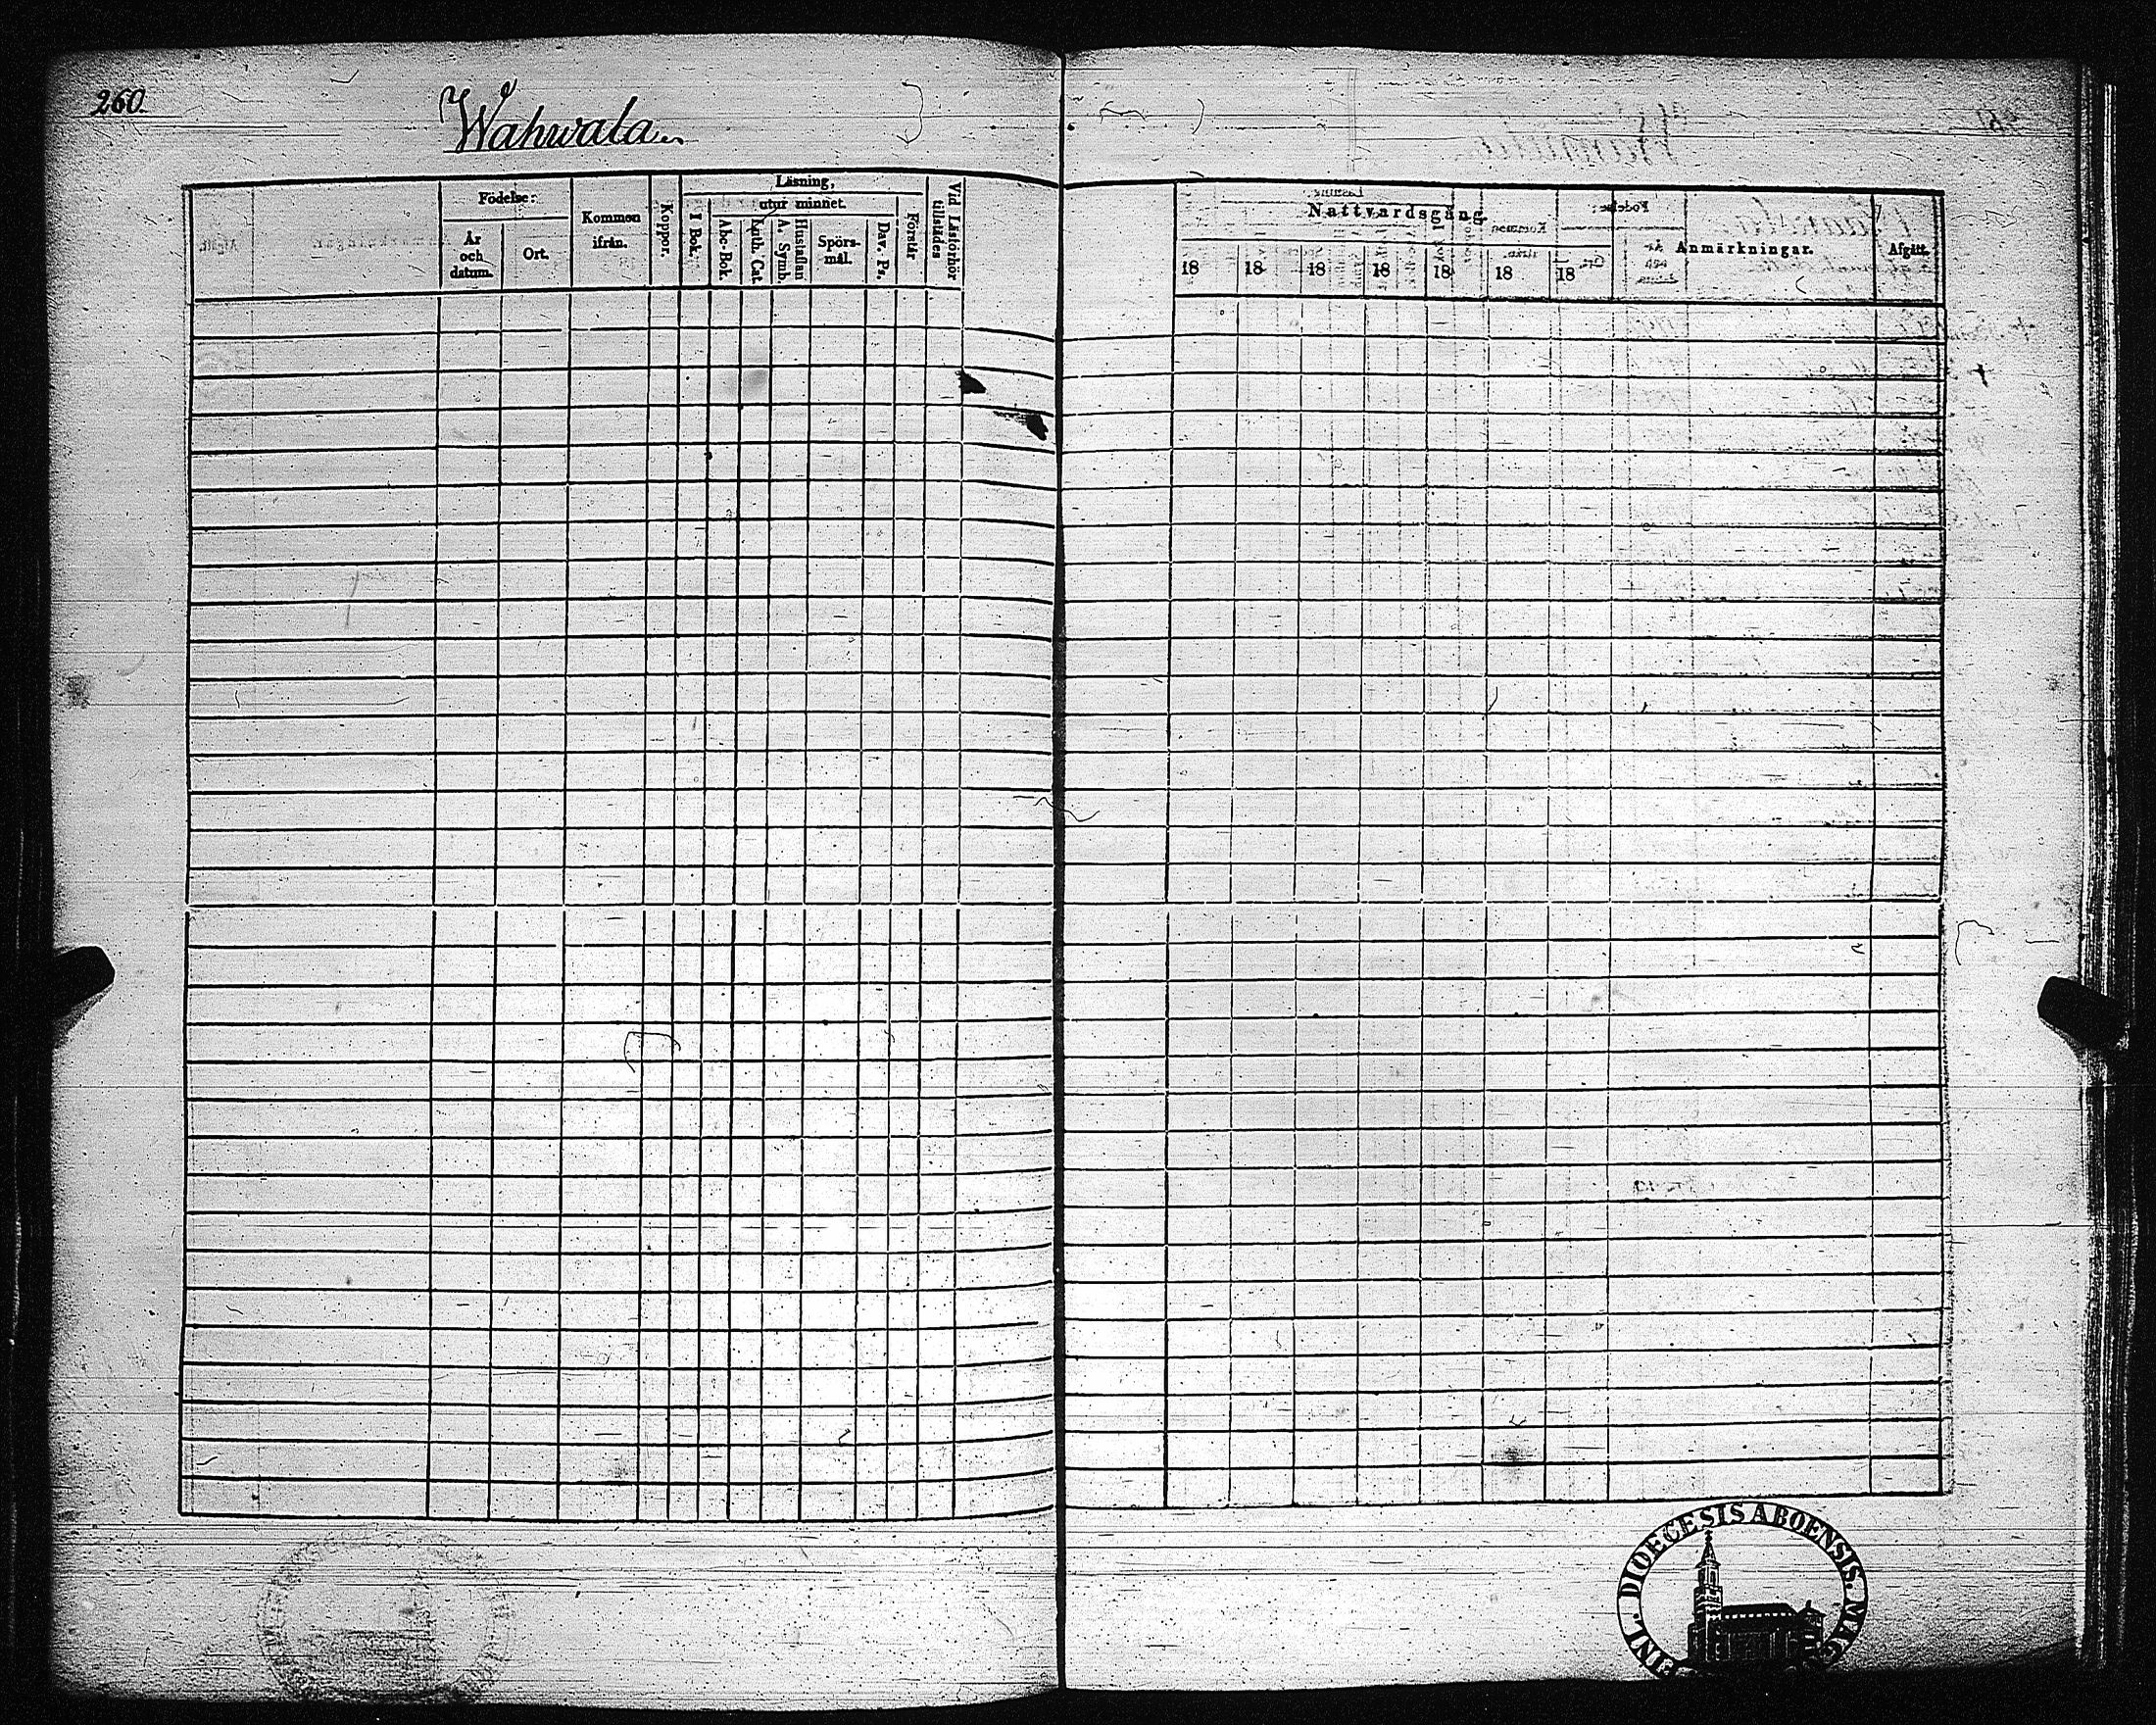 260.
Wahwala.
Födelse:
År och datum.
Ort.
Kommen ifrån.
Koppor.
Läsning,
I Bok.
utur minnet.
Abc-Bok.
Luth. Cat.
Hustaflan
A. Symb.
Spörs-
mål.
Dav. Ps.
Förstår
Vid Läsförhör
tillstädes
Nattvardsgång.
18 18 18 18 18 18 18
Anmärkningar.
Afgått.
FINL. DIOECESIS ABOENSIS.